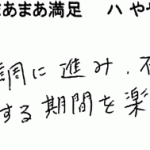 まあまあ満足 ハ やや
調に進み、不
する期間を楽